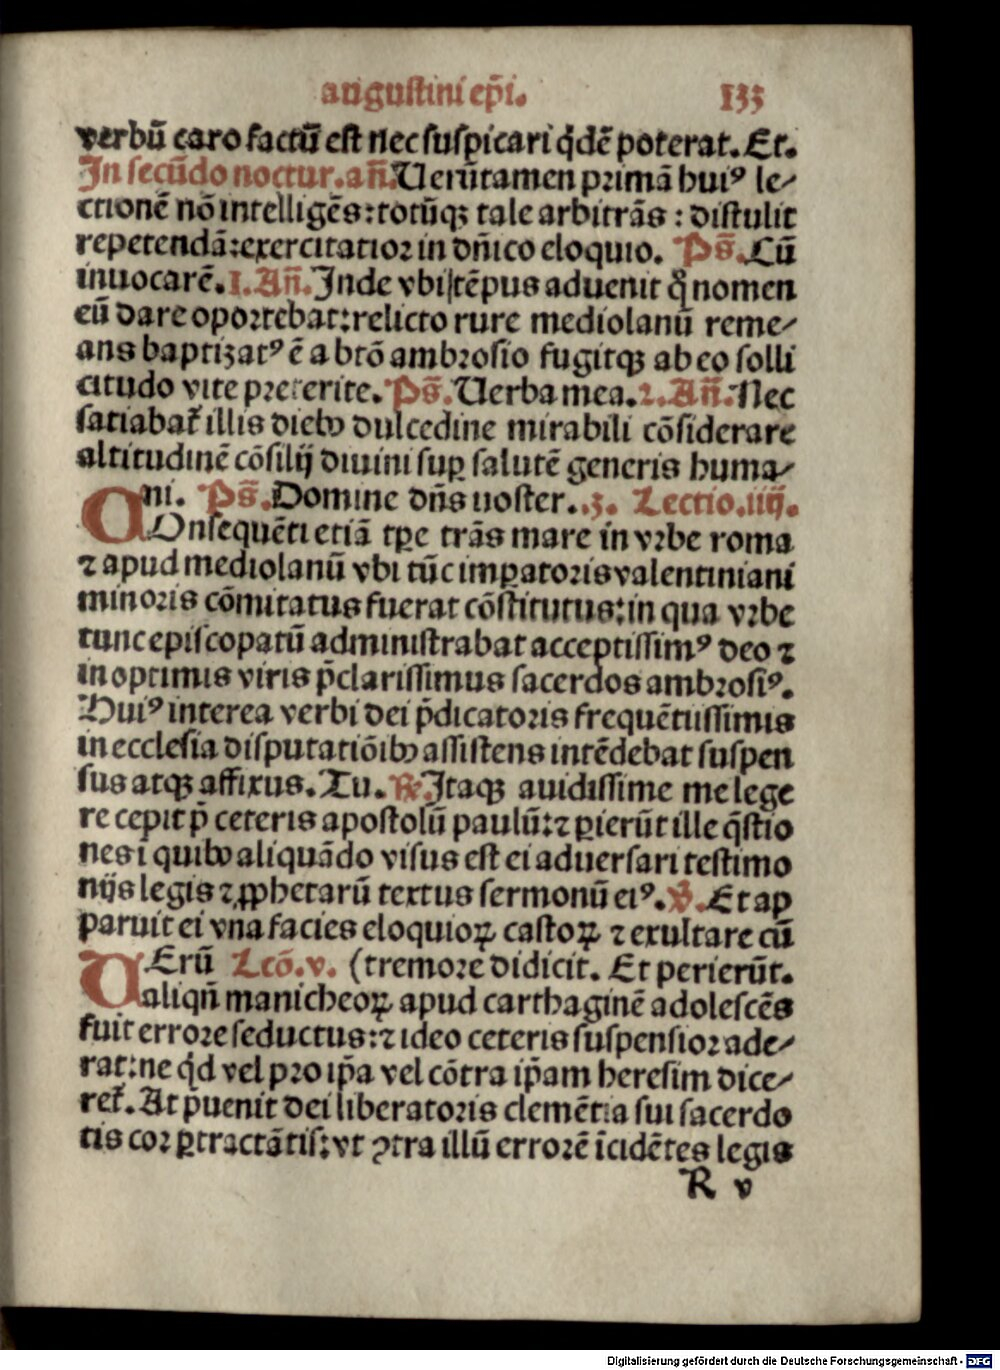 augustini ep̃i. 133
verbū caro factū est nec suspicari q̇dē poterat. Et.
In secūdo noctur. añ. Uerūtamen primā huiꝰ le⸗
ctionē nō intelligēs: totūqꝫ tale arbitrās: distulit
repetendā: exercitatior in dñico eloquio. Ps̄. Cū
inuocarē. 1. Añ. Inde vbi tēpus aduenit q̊ nomen
eū dare oportebat: relicto rure mediolanū reme⸗
ans baptizatꝰ ē a btō ambrosio fugitqꝫ ab eo solli
citudo vite preterite. Ps̄. Uerba mea. 2. Añ. Nec
satiabat᷑ illis diebꝫ dulcedine mirabili cōsiderare
altitudinē cōsilij diuini suꝑ salutē generis huma⸗
ni. Ps̄. Domine dñs noster. .3. Lectio. iiij.
COnsequēti etiā tꝑe trās mare in vrbe roma
⁊ apud mediolanū vbi tūc imꝑatoris valentiniani
minoris cōmitatus fuerat cōstitutus: in qua vrbe
tunc episcopatū administrabat acceptissimꝰ deo ⁊
in optimis viris p̄clarissimus sacerdos ambrosiꝰ.
Huiꝰ interea verbi dei p̄dicatoris frequētissimis
in ecclesia disputatiōibꝫ assistens intēdebat suspen
sus atqꝫ affixus. Tu. ℟ Itaqꝫ auidissime me lege
re cepit p̄ ceteris apostolū paulū: ⁊ ꝑierūt ille q̄stio
nes ī quibꝫ aliquādo visus est ei aduersari testimo
nijs legis ⁊ ꝓphetarū textus sermonū eiꝰ. ℣. Et ap
paruit ei vna facies eloquioꝝ castoꝝ ⁊ exultare cū
UErū Lcō. v. (tremore didicit. Et perierūt.
aliqñ manicheoꝝ apud carthaginē adolescēs
fuit errore seductus: ⁊ ideo ceteris suspensior ade⸗
rat: ne q̇d vel pro ip̄a vel cōtra ip̄am heresim dice⸗
ret᷑. At p̄uenit dei liberatoris clemētia sui sacerdo
tis cor ꝑtractātis: vt ꝯtra illū errorē īcidētes legis
R v
Digitalisierung gefördert durch die Deutsche Forschungsgemeinschaft - DFG